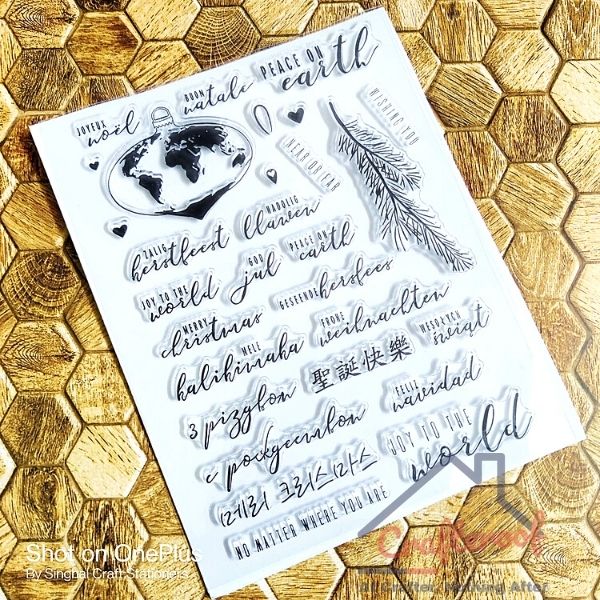 PEACE ON
earth
BUON
natale
JOYEUX
noël
WISHING YOU
NEAR OR FAR
NADOLIG
llawen
ZALIG
kerstfeest
GOD
jul
PEACE ON
earth
JOY TO THE
world
GESEËNDE kersfees
MERRY
christmas
FROHE
weihnachten
MELE
kalikimaka
聖誕快樂
WESOŁYCH
świąt
З різдвом
FELIZ
navidad
с рождеством
JOY TO THE
world
메리 크리스마스
NO MATTER WHERE YOU ARE
Shot on OnePlus
By Singhal Craft Stationers